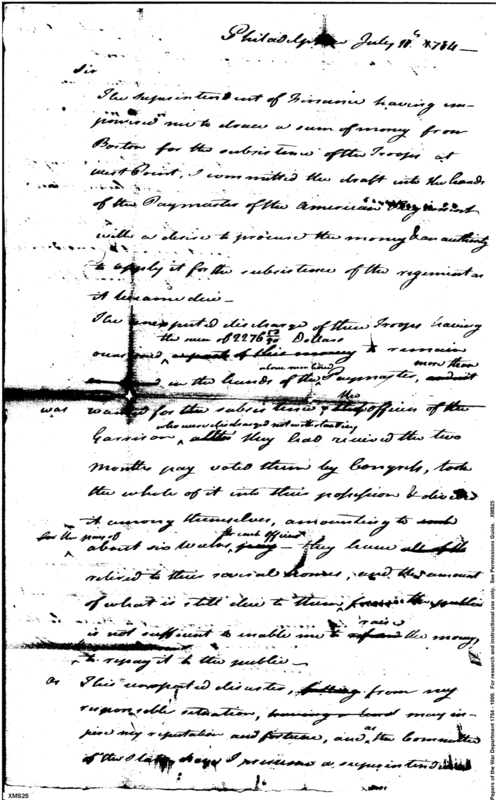 Philadelphia July 11th 1784 —
Sir
The Superintendent of Finance having em-
powered me to draw a sum of money from
Boston for the subsistence of the Troops at
West Point, I committed the draft into the hands
of the Paymaster of the American Regiment
with a desire to procure the money & an authority
to apply it for the subsistence of the regiment as
it became due —
The unexpected discharge of these Troops having
the sum of 2276 Dollars
occasioned of this money to remain
above mentioned more than
in the hands of the Paymaster,
the
was wanted for the subsistence officers of the
who were discharged notwithstanding
Garrison, after they had received the two
months pay voted them by Congress, took
the whole of it into their possession & divided
it among themselves, amounting to
for the pay of for each officer
about six weeks, pay — they have
retired to their several homes, and the amount
of what is still due to them, from the public
raise
is not sufficient to enable me to the money,
to repay it to the public —
As This unexpected disaster, from my
responsible situation, may in-
jure my reputation and fortune, and as the Committee
of the States I presume a superintendence
Papers of the War Department 1784 - 1800. For research and instructional use only. See Permissions Guide. XMS25
XMS25